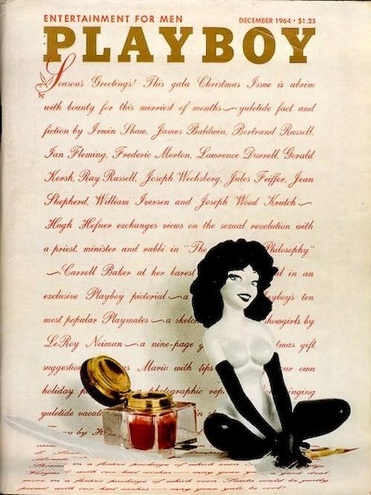 ENTERTAINMENT FOR MEN
DECEMBER 1964 • $1.25
PLAYBOY
Seasons Greetings! This gala Christmas Issue is abrim
with bounty for this merriest of months ~ yuletide fact and
fiction by Irwin Shaw, James Baldwin, Bertrand Russell,
Ian Fleming, Frederic Morton, Lawrence Durrell, Gerald
Kersh, Ray Russell, Joseph Wechsberg, Jules Feiffer, Jean
Shepherd, William Iversen and Joseph Wood Krutch ~
Hugh Hefner exchanges views on the sexual revolution with
a priest, minister and rabbi in "The Philosophy"
~ Carroll Baker at her barest in an
exclusive Playboy pictorial ~ a
most popular Playmates ~ a showgirls by
LeRoy Neiman ~ a nine-page gift
suggestion Mario with tips own
holiday photographic
yuletide
by